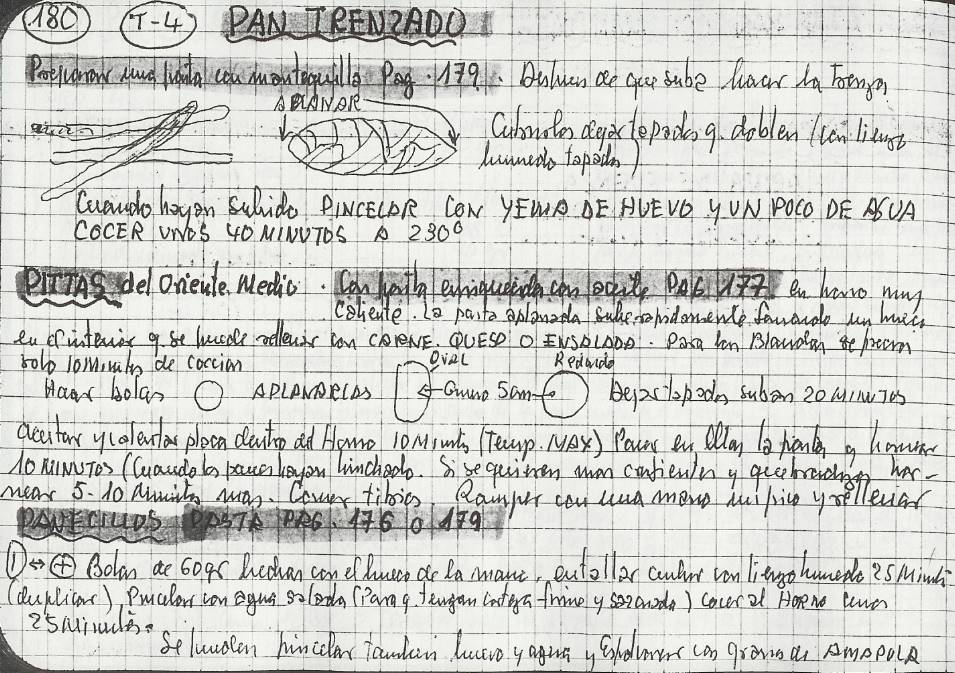 180 T-4 PAN TRENZADO
Preparar una pasta con mantequilla Pag. 179. Despues de que sube hacer la Trenza
APLANAR
Cubrirlos dejar tapados q. doblen (con lienzo
humedo tapados)
Cuando hayan subido PINCELAR CON YEMA DE HUEVO Y UN POCO DE AGUA
COCER UNOS 40 MINUTOS A 230º
PITTAS del Oriente Medio. Con pasta enriquecida con aceite PAG 177 en horno muy
caliente. La pasta aplanada sube rapidamente formando un hueco
en el interior q. se puede rellenar con CARNE. QUESO O ENSALADA. Para Blandas se
solo 10 Minutos de coccion
OVAL Redondo
Hacer bolas APLANARLAS Grueso 5 cm Dejar tapados suban 20 MINUTOS
Aceitar y calentar placa dentro del Horno 10 Minutos (Temp. MAX) Poner en ellas la pasta y hornear
10 MINUTOS (Cuando los panes hayan hinchado. Si se quieren mas y quebradizos hor-
near 5-10 Minutos mas. Comer tibios Romper con una mano un pico y rellenar
PANECILLOS PASTA PAG. 176 O 179
1 ↔ + Bolas de 60 gr hechas con el hueco de la mano, entallar cubrir con lienzo humedo 25 Minutos
(duplicar) Pincelar con agua salada (Para q. tengan corteza fina y sazonada) cocer al HORNO unos
25 Minutos.
Se pueden pincelar Tambien huevo y agua y Espolvorear con granos de AMAPOLA